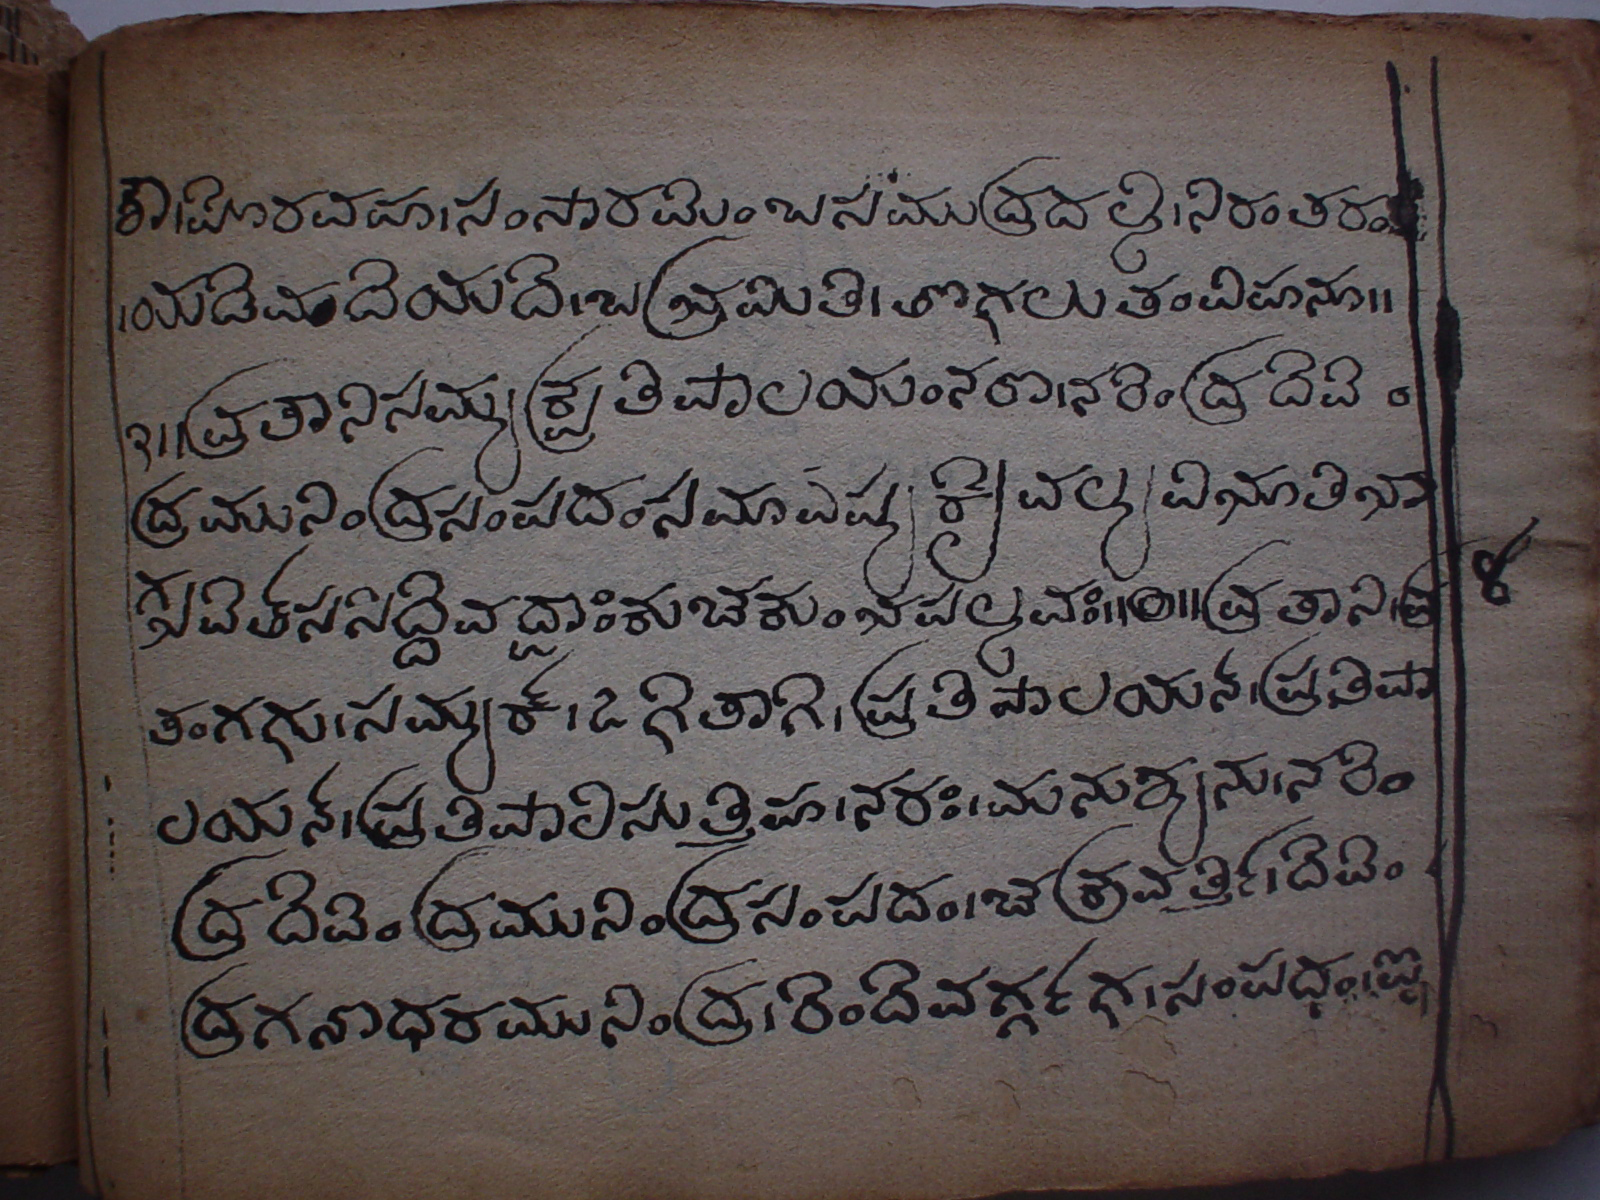 ಕಾ।ಘೋರವಹ।ಸಂಸಾರಮೆಂಬಸಮುದ್ರದಲ್ಲಿ।ನಿರಂತರಂ
।ಯಡೆವಿಡದೆಯದೆ।ಬಭ್ರಮಿತಿ।ತೊಗಲುತಂವಿಹನೂ॥
೩॥ವ್ರತಾನಿಸಮ್ಯಕ್ಪ್ರತಿಪಾಲಯಂನರೊ।ನರೆಂದ್ರದೆವೆಂ
ದ್ರಮುನಿಂದ್ರಸಂಪದಂಸಮಾಪ್ಯಕೈವಲ್ಯವಿಭೂತಿಭಾ
ಗ್ಭವೆತ್ಸಸಿದ್ಧೆವದ್ದಾಂಕುಚಕುಂಭಪಲ್ಲವಃ॥೦॥ವ್ರತಾನಿ।ವ್ರ
ತಂಗಳು।ಸಮ್ಯಕ್।ಒಳಿತಾಗಿ।ಪ್ರತಿಪಾಲಯನ್।ಪ್ರತಿಪಾ
ಲಯನ್।ಪ್ರತಿಪಾಲಿಸುತ್ತಿಹ।ನರಃ।ಮನುಷ್ಯನು।ನರೆಂ
ದ್ರದೆವೆಂದ್ರಮುನಿಂದ್ರಸಂಪದಂ।ಚಕ್ರವರ್ತ್ತಿ।ದೆವೆಂ
ದ್ರಗಣಾಧರಮುನಿಂದ್ರ।ರೆಂದೆವರ್ಗ್ಗಳ।ಸಂಪದಂ।
೪